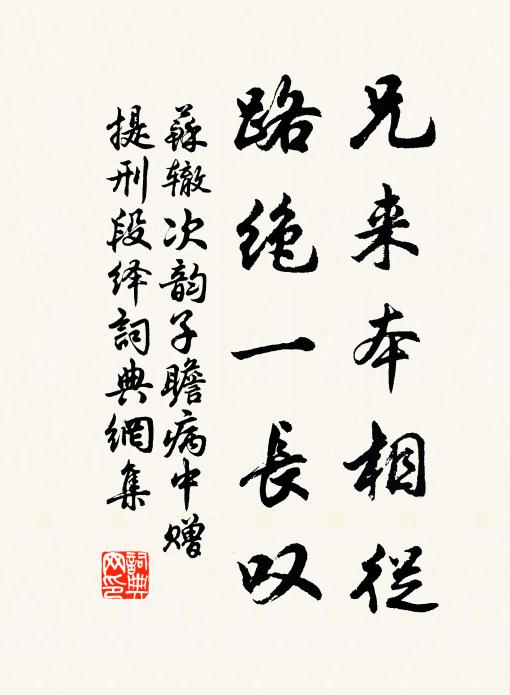 兄来本相從
路绝一長叹
蘇辙次韵子瞻病中赠
提刑段绎詞典網集
詞典
网印